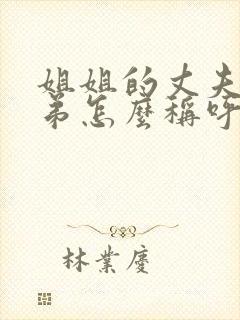 姐姐的丈夫
弟怎麼稱呼
林業慶